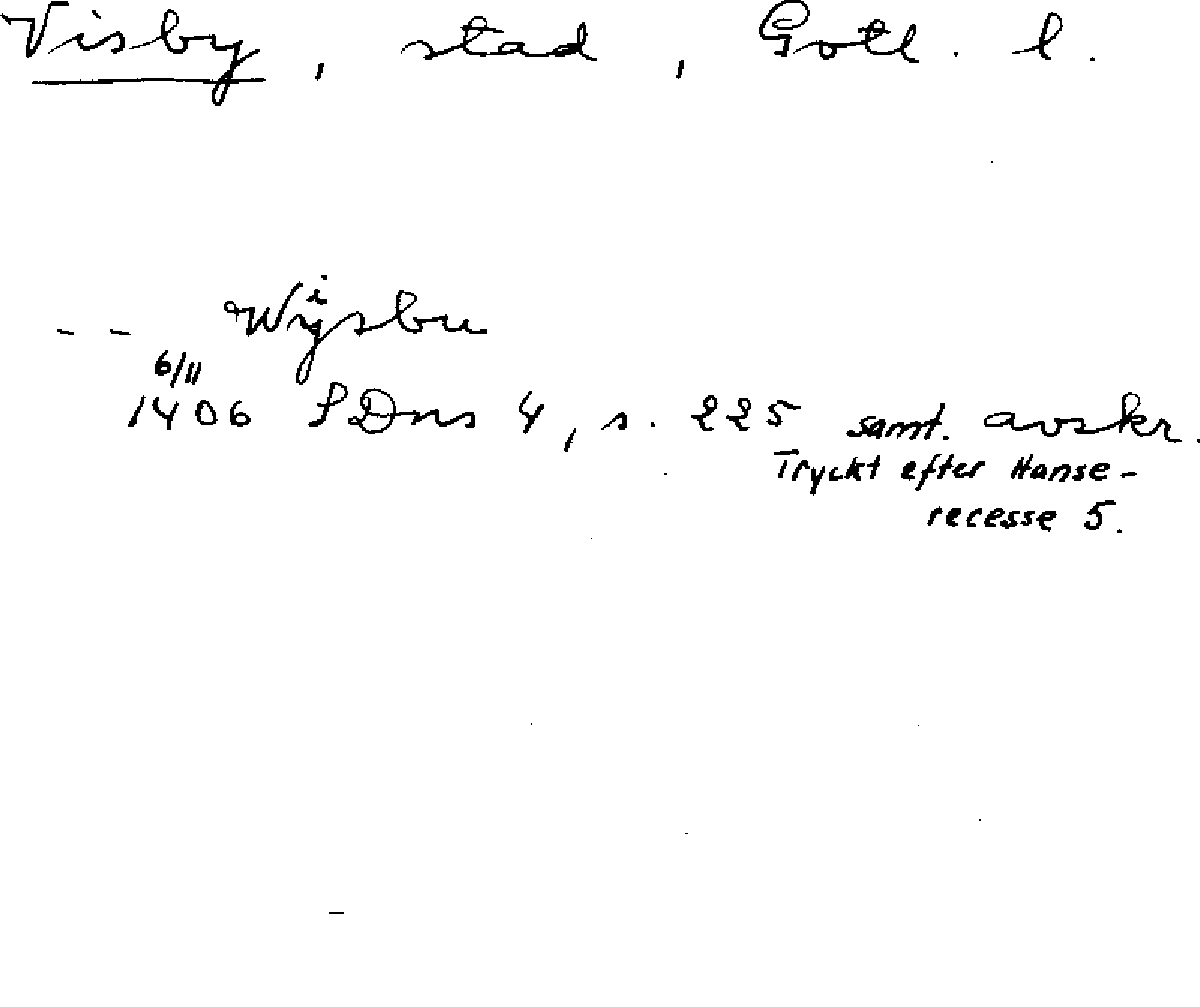 Visby, stad, Gotl. l.
-- Wÿsbu
i
6/11
1406 SDns 4, s. 225 samt. avskr.
Tryckt efter Hanse-
recesse 5.